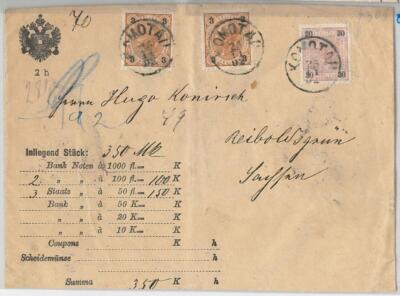 70
3 3 3 3 20 20
KOMOTAU KOMOTAU KOMOTAU
2 h
Herrn Hugo Konirsch
Reiboldsgrün
Sachsen
Inliegend Stück: 350
Bank Noten à 1000 fl. K
2 „ „ à 100 fl. 100 K
3 Staats „ à 50 fl. 150 K
Bank „ à 50 K
„ „ à 20 K
„ „ à 10 K
Coupons K h
Scheidemünze K h
Summa 350 K h